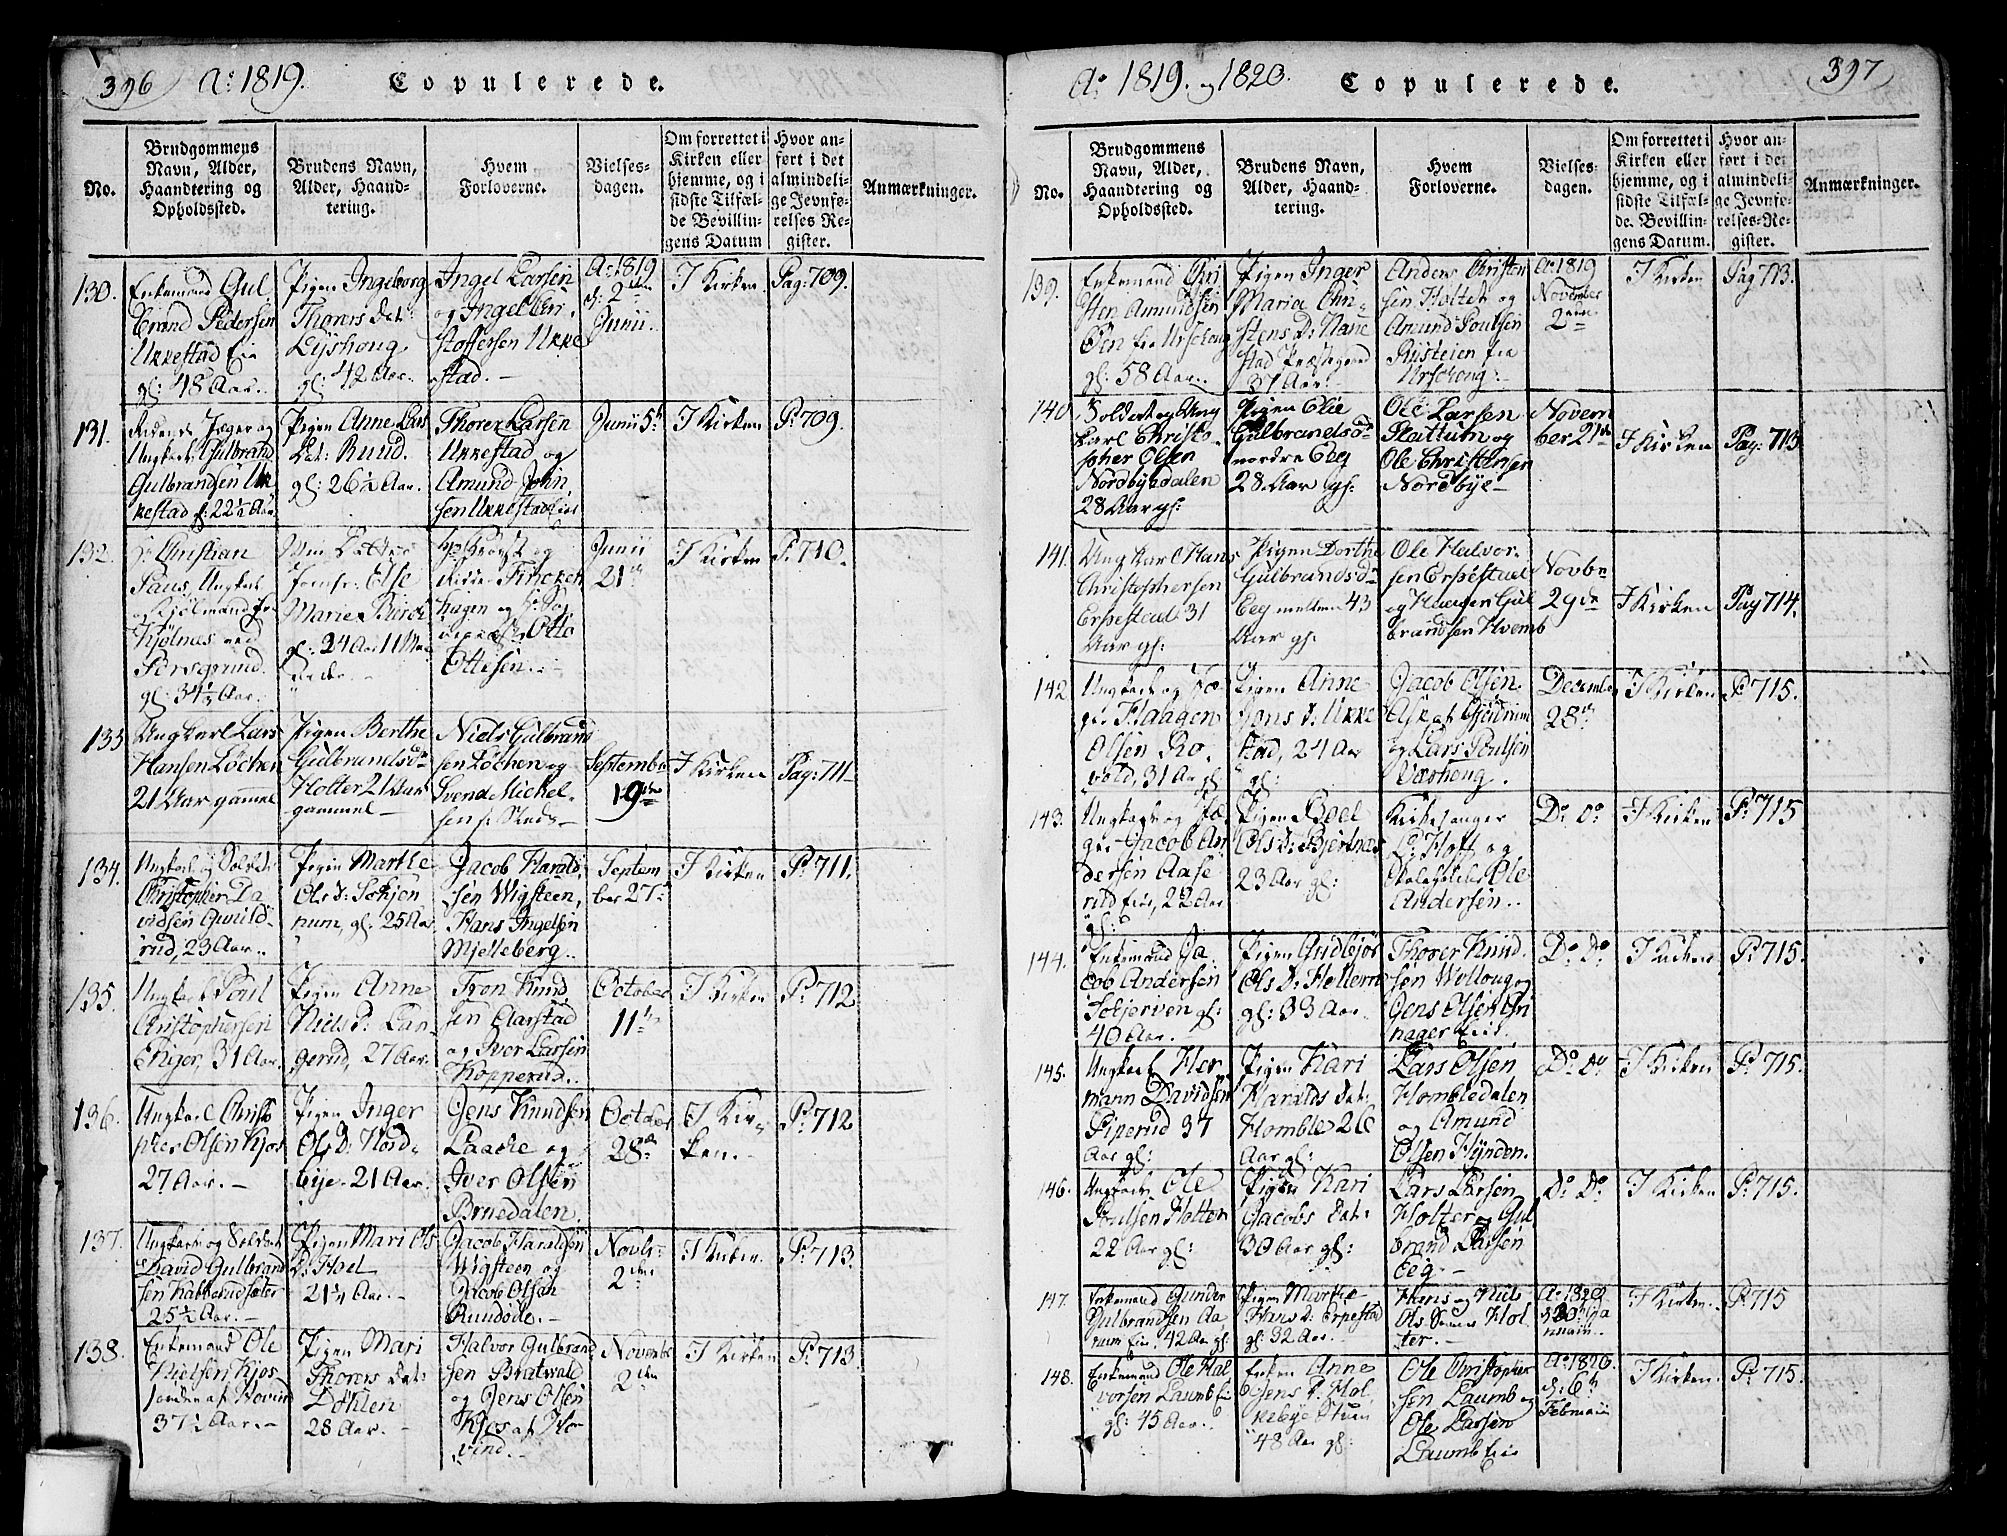 396 Aº 1819. Copulerede.
No.
Brudgommens
Navn, Alder,
Haandtering og
Opholdssted.
Brudens Navn,
Alder, Haand-
tering.
Hvem
Forloverne.
Vielses-
dagen.
Om forrettet i
Kirken eller
hjemme, og i
sidste Tilfæl-
de Bevillin-
gens Datum
Hvor an-
ført i det
almindeli-
ge Jevnfø-
relses Re-
gister.
Anmærkninger.
130.
Enkemand Gul
brand Pedersen
Ukkestad Eie
gl: 48 Aar.
Pigen Ingeborg
Thorers Dat:
Lyshoug
gl: 42 Aar.
Ingel Larsen
og Ingel Chri
stoffersen Ukke
stad.
Aº 1819
d: 2den
Junii.
I Kirken
Pag: 709.
131.
Ridende Jæger og
Ungkarl Gulbrand
Gulbrandsen Uk
kestad gl: 22½ Aar
Pigen Anne Lars
Dat: Ruud.
gl: 26½ Aar.
Thorer Larsen
Ukkestad og
Amund John
sen Ukkestadeiet
Junii 5te
I Kirken
P: 709.
132.
Hr Christian
Paus, Ungkarl
og
Kjølnæs ved
Porsgrund.
gl: 34½ Aar.
Min Datter
Jomfr: Else
Marie
gl: 24 Aar 11 Maa
neder.
og
Fincken
hagen og
Otto
Ottesen.
Junii
21de
I Kirken
P: 710.
133
Ungkarl Lars
Hansen Løchen
21 Aar gammel
Pigen Berthe
Gulbrandsdr
Holter 21 Aar
gammel
Niels Gulbrand
sen Løchen og
Svend Mickel-
sen
Septembr
19de
I Kirken
Pag: 711
134.
Ungkarl og Soldat
Christopher Da
vidsen
rud, 23 Aar.
Pigen Marthe
Ols D: Sckjøn
num, gl: 25 Aar
Jacob Harald
sen Wigsteen,
Hans Ingelsen
Mjelleberg.
Septem
ber 27de
I Kirken
P: 711.
135.
Ungkarl Poul
Christophersen
Enger, 31 Aar.
Pigen Anne
Niels D: Lan
gerud, 27 Aar.
Tron Knud
sen Aarstad
og Iver Larsen
Kopperud.
October
11te
I Kirken
P: 712
136.
Ungkarl Christo
pher Olsen Kjos
27 Aar.
Pigen Inger
Ols D: Nord
bye 21 Aar.
Jens Knudsen
Laache og
Iver Olsen
Brnedalen.
October
28de
I Kir
ken.
P: 712
137.
Ungkarl og Soldat
David Gulbrand
sen
25½ Aar.
Pigen Mari Ols
D: Hoel
21¼ Aar.
Jacob Haraldsen
Wigsteen og
Jacob Olsen
Rundode.
Novbr:
2den
I Kirken
P: 713.
138.
Enkemand Ole
Nielsen Kjos
af Hovind
37½ Aar.
Pigen Mari
Thorers Dat:
Døhlen
28 Aar.
Halvor Gulbrand
sen Bratvald
og Jens Olsen
Kjos af Ho
vind.
Novembr
2den
I Kirken
P: 713.
Aº 1819. og 1820. Copulerede. 397
No.
Brudgommens
Navn, Alder,
Haandtering og
Opholdssted.
Brudens Navn,
Alder, Haand-
tering.
Hvem
Forloverne.
Vielses-
dagen.
Om forrettet i
Kirken eller
hjemme, og i
sidste Tilfæl-
de. Bevillin-
gens Datum.
Hvor an-
ført i det
almindeli-
ge Jevnfø-
relses-Re-
gister.
Anmærkninger.
139.
Enkemand Chri
sten Amundsen
Øen fra Urschoug
gl: 58 Aar.
Pigen Inger
Maria Chri-
stens D: Nane
stad Præstegaard
37 Aar.
Anders Christen
sen Holtet og
Amund Poulsen
Riisteien fra
Urschoug.
Aº 1819
November
2den
I Kirken
Pag 713.
140
Soldat og Ung
karl Christo-
pher Olsen
Nordbyedalen
28 Aar gl:
Pigen Elie
Gulbrandsdr
nordre Eeg
28 Aar gl:
Ole Larsen
Plattum og
Ole Christensen
Nordbye
Novem
ber 21de
I Kirken
Pag: 713
141.
Ungkarl Hans
Christophersen
Erpestad 31
Aar gl:
Pigen Dorthe
Gulbrandsdr
Eeg mellem 43
Aar gl:
Ole Halvor-
sen Erpestad
og Gul
brandsen Hvamb
Novbr
29de
I Kirken
Pag 714.
142
Ungkarl og Jæ
ger Haagen
Olsen Ro
vold, 31 Aar gl:
Pigen Anne
Jons D: Ukke
stad, 24 Aar
gl:
Jacob Olsen
Ask af Gjerdrum
og Lars Poulsen
Værhoug.
December
28de
I Kirken
P: 715.
143.
Ungkarl og Jæ
ger Jacob An
dersen Aase
rud Eie, 22 Aar
gl:
Pigen Boel
Ols D: Bjertnæs
23 Aar gl:
Kirkesanger
L: Hoft og
Skoleholder Ole
Andersen.
Dº Dº
I Kirken
P: 715
144.
Enkemand Ja
cob Andersen
Sckjerven gl:
40 Aar.
Pigen Gudbjør
Ols D: Hellerud
gl: 33 Aar.
Thorer Knud
sen Wollaug og
Jens Olsen
hager Eiet.
Dº Dº
I Kirken
P: 715.
145.
Ungkarl Her
mann Davidsen
Piperud 37
Aar gl:
Pigen Kari
Haralds Dat:
Homble 26
Aar gl:
Lars Olsen
Hombledalen
og Amund
Olsen Hynden.
Dº Dº
I Kirken
P: 715.
146.
Ungkarl Ole
Poulsen Holter
22 Aar gl:
Pigen Kari
Jacobs Dat:
30 Aar gl:
Lars Larsen
Holter og Gul
brand Larsen
Eeg.
Dº Dº
I Kirken
P: 715.
147.
Enkemand Gunder
Gulbrandsen Aa
rum Eie. 42 Aar gl:
Pigen Marthe
Hans D: Erpestad
gl: 32 Aar.
Hans og Niels
Ols Sønner Hol
ter.
Aº 1820
d: 20de Ja
nuarii.
I Kirken.
P: 715
148.
Enkemand Ole Hal
vorsen Laumb Eie
gl: 45 Aar.
Enken Anne
Jens D: Hol
kebye Stuen
48 Aar gl:
Ole Christopher
sen Laumb og
Ole Larsen
Laumb Eie
Aº 1820.
d: 6te
Februarii
I Kirken.
P: 715.